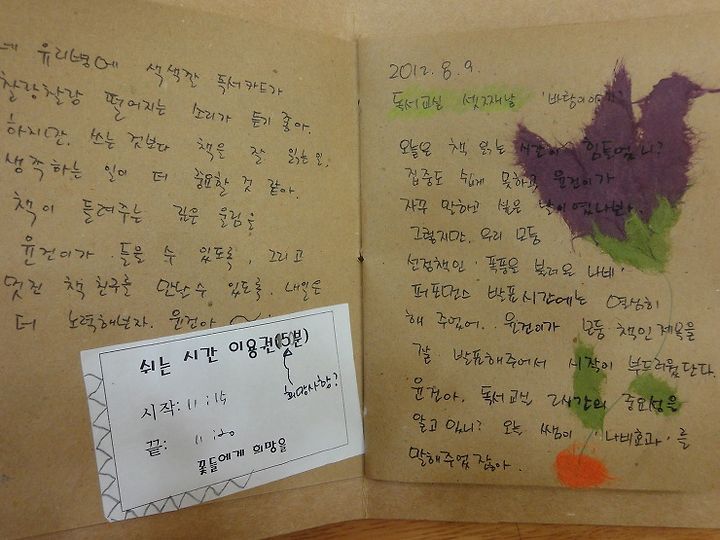 네 유리병에 색색깔 독서카드가
찰랑찰랑 떨어지는 소리가 듣기 좋아.
하지만, 쓰는 것보다 책을 잘 읽는 일,
생각하는 일이 더 중요할 것 같아.
책이 들려주는 깊은 울림을
윤건이가 들을 수 있도록, 그리고
멋진 책 친구를 만날 수 있도록. 내일은
더 노력해보자. 윤건아 ~
쉬는 시간 이용권(5분)
희망사항?
시작: 11 : 15
끝: 11 : 20
꽃들에게 희망을
2012. 8. 9.
독서교실 셋째날 '바람이
오늘은 책 읽는 시간이 힘들었니?
집중도 쉽게 못하고 윤건이가
자꾸 말하고 싶은 날이었나보다.
그렇지만, 우리 모둠
선정책인 '폭풍을 불러온 나비'
퍼포먼스 발표시간에는 열심히
해 주었어. 윤건이가 모둠 책인 제목을
잘 발표해주어서 시작이 부드러웠단다.
윤건아, 독서교실 2시간의 중요성을
알고 있니? 오늘 쌤이 '나비효과'를
말해주었잖아.